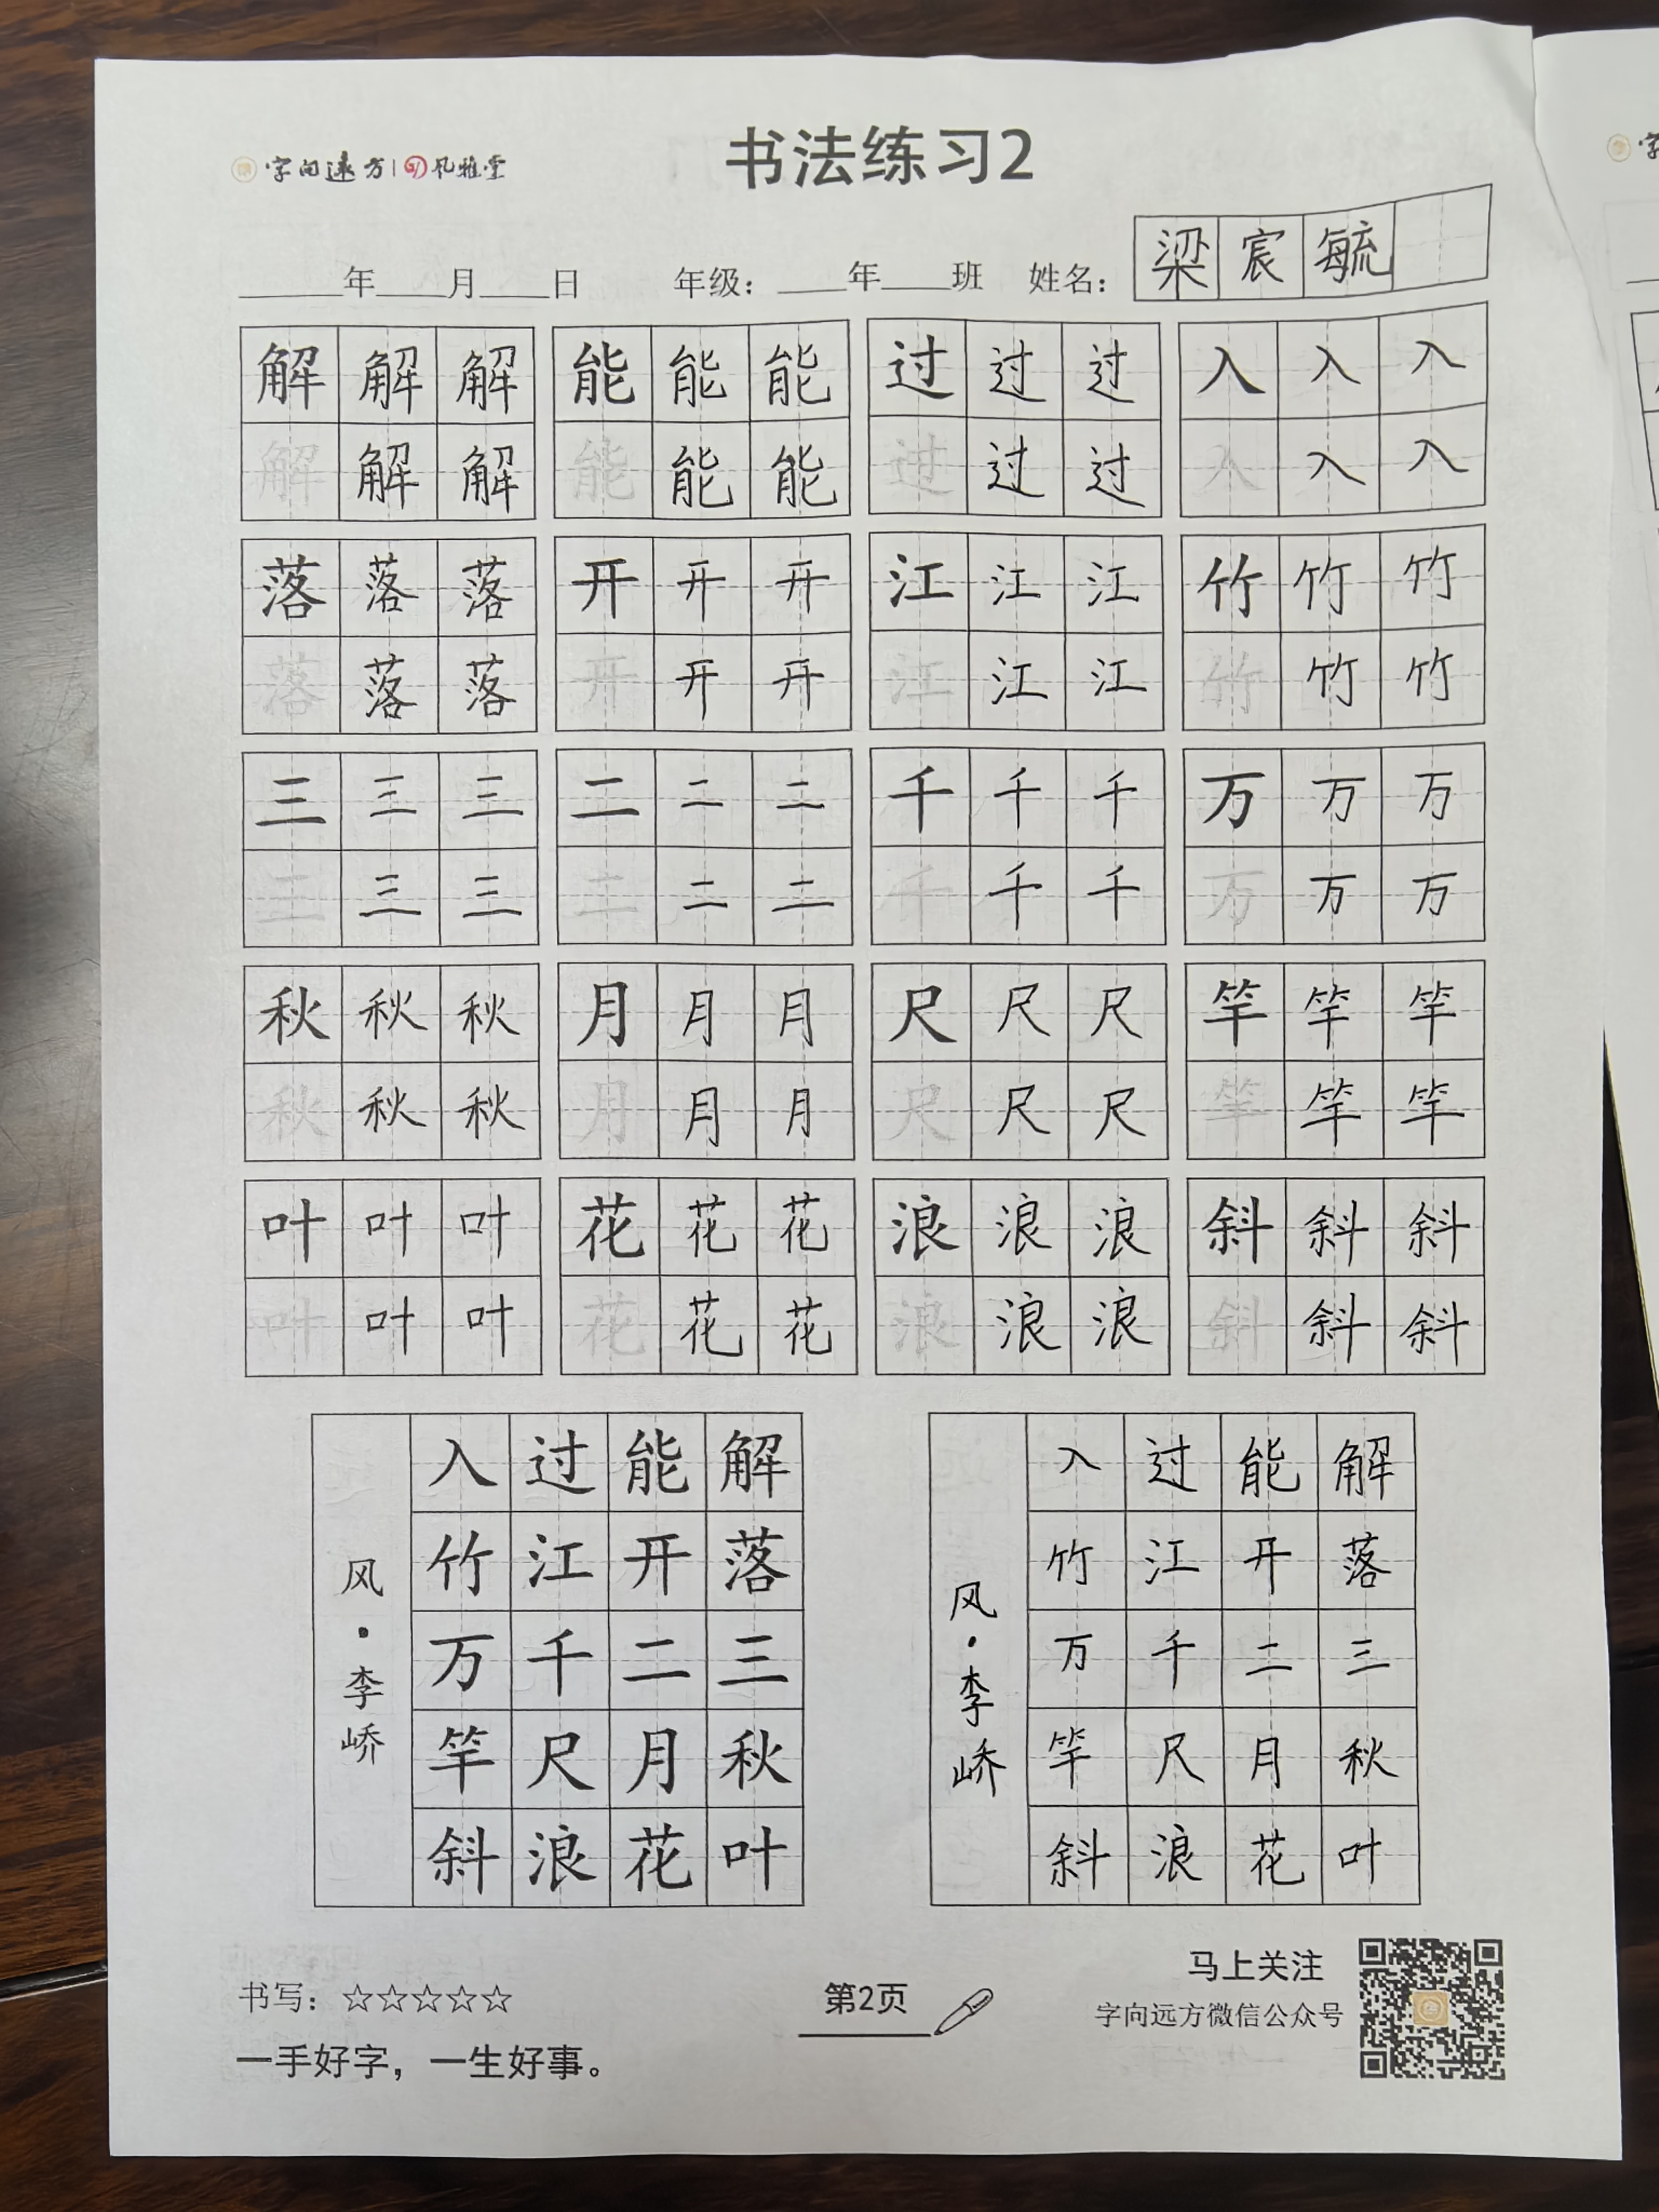 字向远方 风雅堂
书法练习2
年 月 日 年级： 年 班 姓名： 梁宸毓
解解解 能能能 过过过 入入入
解解解 能能能 过过过 入入入
落落落 开开开 江江江 竹竹竹
落落落 开开开 江江江 竹竹竹
三三三 二二二 千千千 万万万
三三三 二二二 千千千 万万万
秋秋秋 月月月 尺尺尺 竿竿竿
秋秋秋 月月月 尺尺尺 竿竿竿
叶叶叶 花花花 浪浪浪 斜斜斜
叶叶叶 花花花 浪浪浪 斜斜斜
解落三秋叶
能开二月花
过江千尺浪
入竹万竿斜
风·李峤
解落三秋叶
能开二月花
过江千尺浪
入竹万竿斜
风·李峤
书写：☆☆☆☆☆
一手好字，一生好事。
第2页
马上关注
字向远方微信公众号